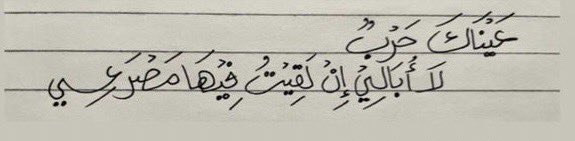 عَيْنَاكَ حَرْبٌ
لَا أُبَالِيْ إِنْ لَقِيْتُ فِيْهَا مَصْرَعِي